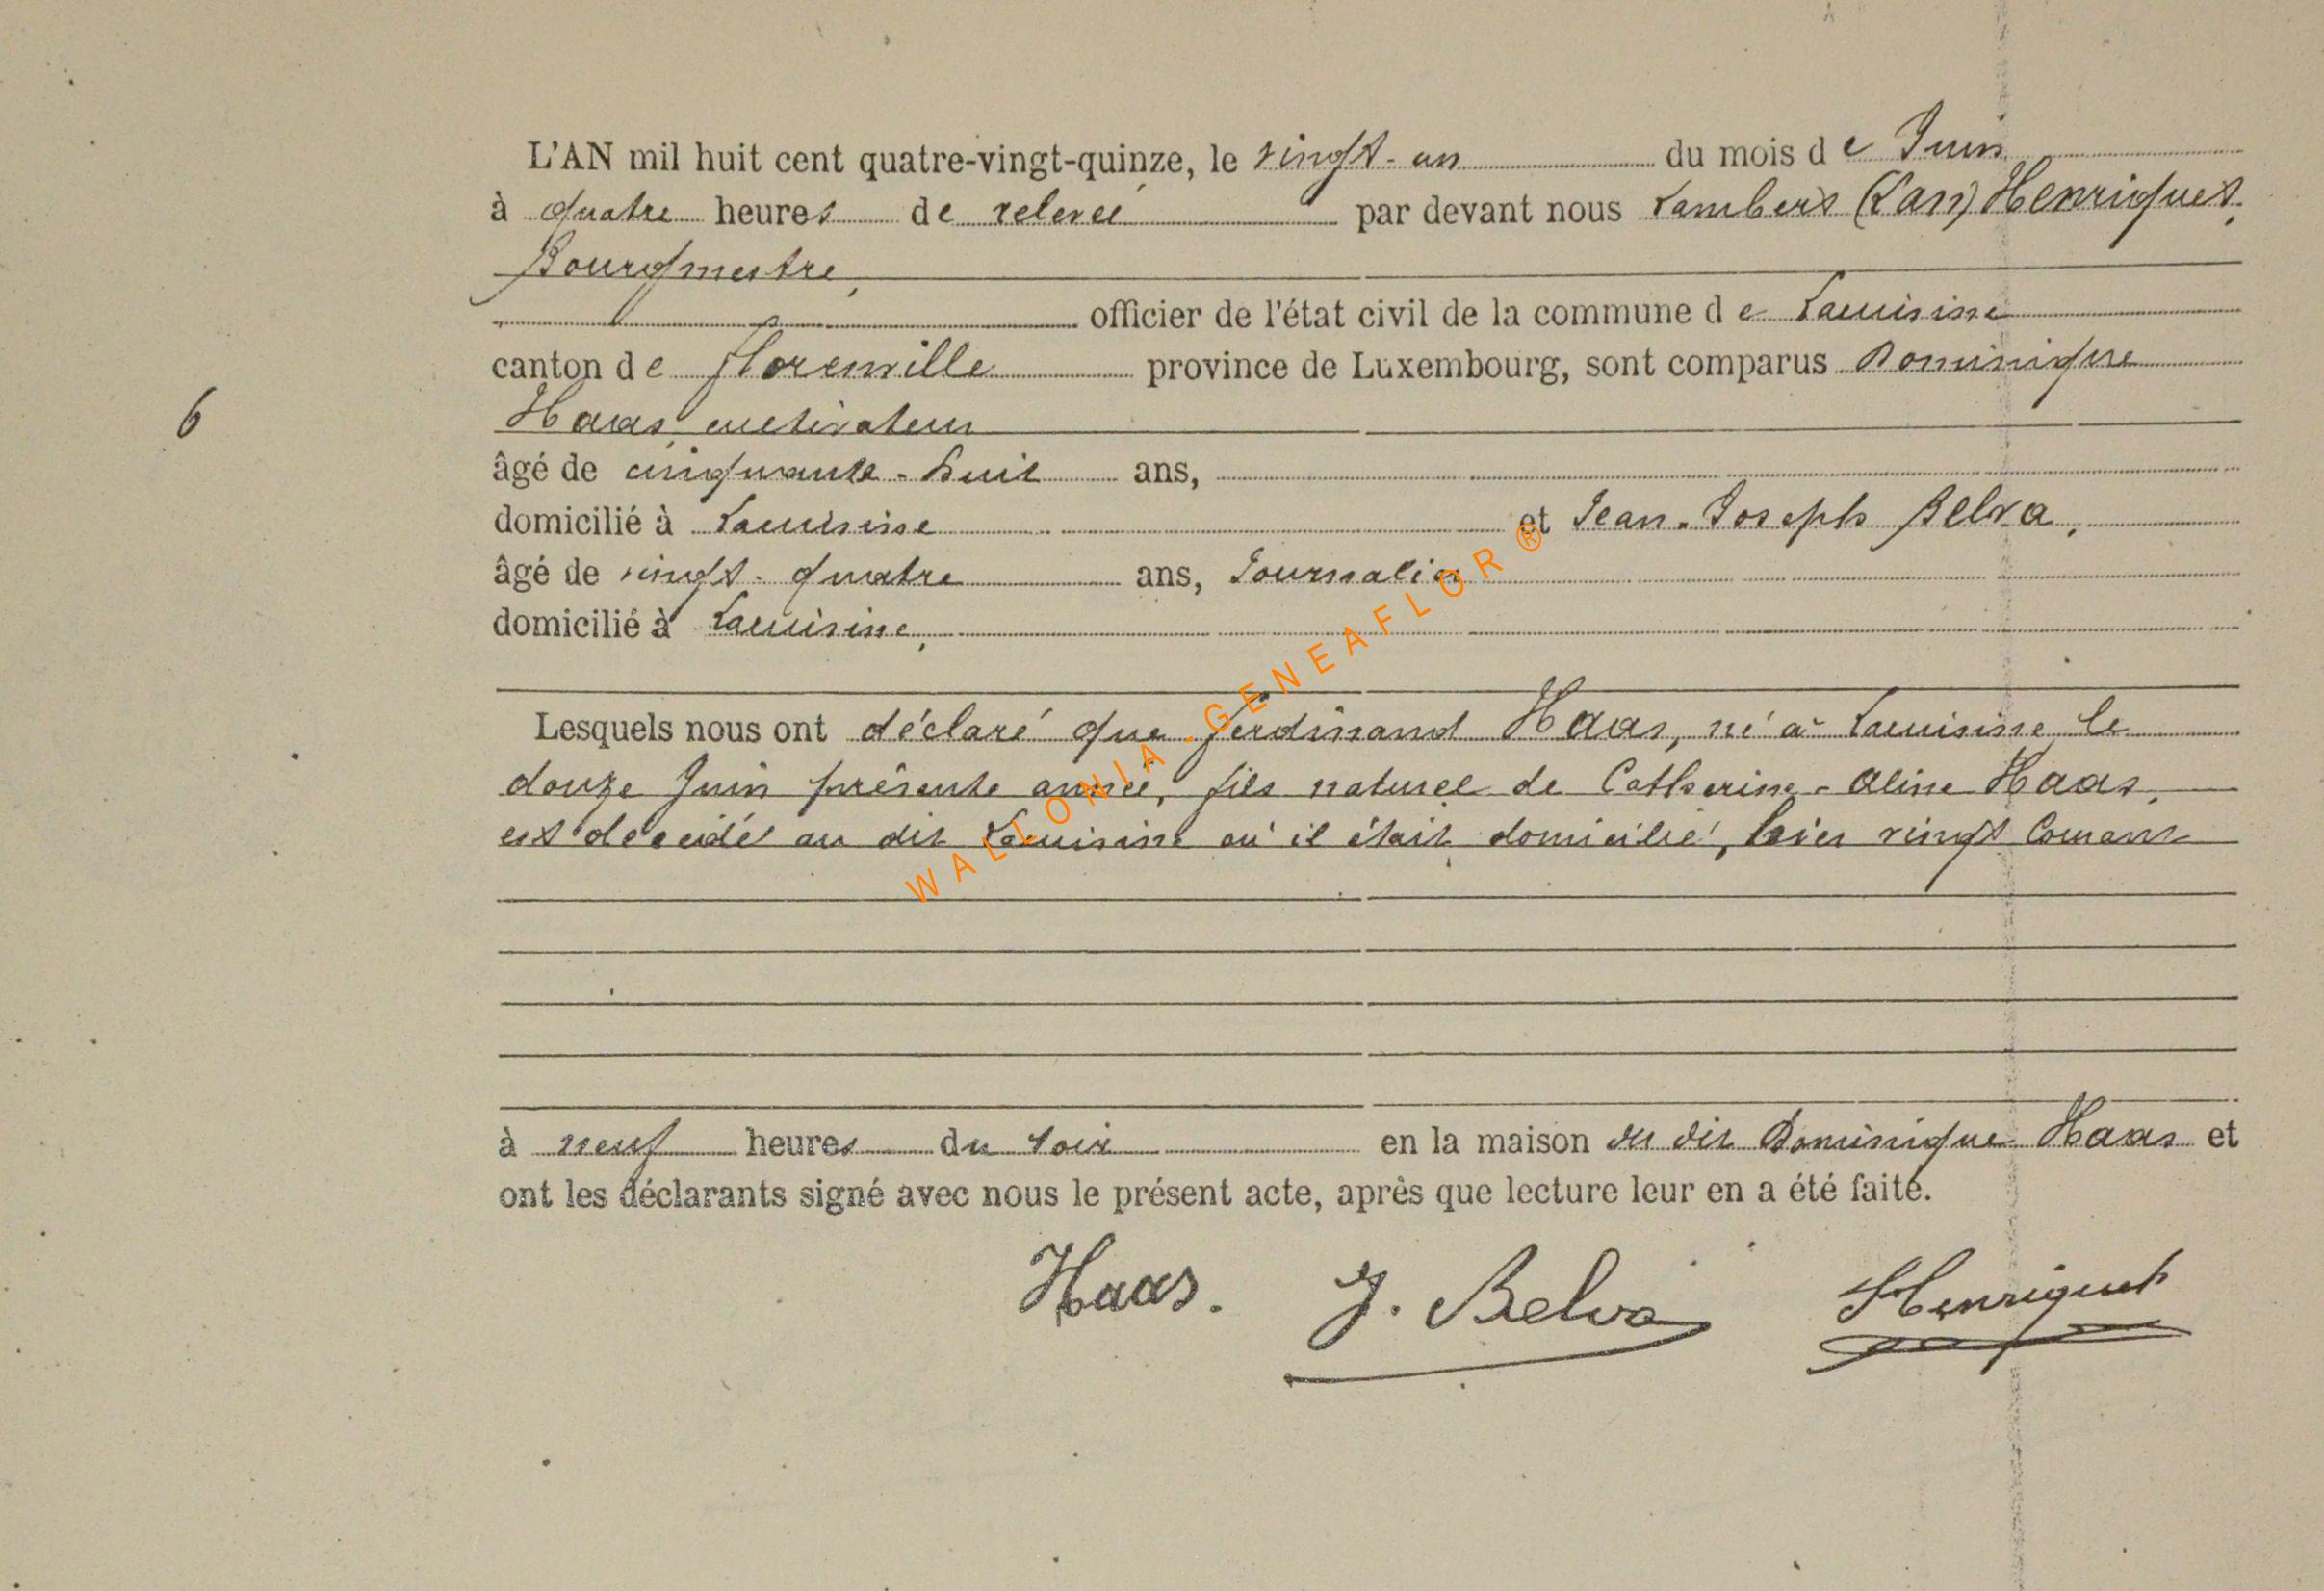 L'AN mil huit cent quatre-vingt-quinze, le vingt-un du mois de Juin
à quatre heures de relevée par devant nous Lambert (Jan) Henriquet,
Bourgmestre,
officier de l'état civil de la commune de Lacuisine
canton de Florenville province de Luxembourg, sont comparus Dominique
6
Haas cultivateur
âgé de cinquante-huit ans,
domicilié à Lacuisine et Jean-Joseph Belva,
âgé de vingt-quatre ans, Journalier
domicilié à Lacuisine,
Lesquels nous ont déclaré que Ferdinand Haas, né à Lacuisine le
douze Juin présente année, fils naturel de Catherine-Aline Haas,
est décédé au dit Lacuisine où il était domicilié, hier vingt Courant
à neuf heures du soir en la maison du dit Dominique Haas et
ont les déclarants signé avec nous le présent acte, après que lecture leur en a été faite.
Haas. J. Belva Henriquet
WALLONIA-GENEAFLOR®